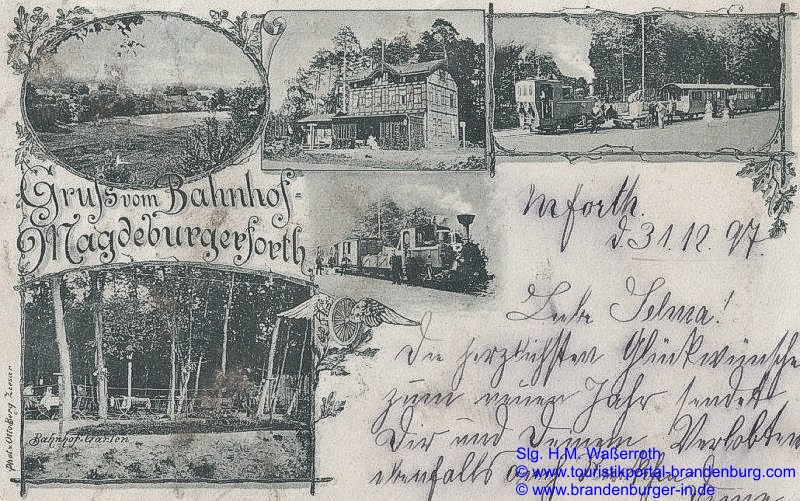 Gruß vom Bahnhof-
Magdeburgerforth
Mforth.
d. 31.12.97.
Liebe Selma!
Die herzlichsten Glückwünsche
zum neuen Jahr sendet
Dir und Deinem Verlobten
ebenfalls auch
Bahnhof-Garten
Phot. v. Otto Burg
Slg. H.M. Waßerroth
© www.touristikportal-brandenburg.com
© www.brandenburger-in.de